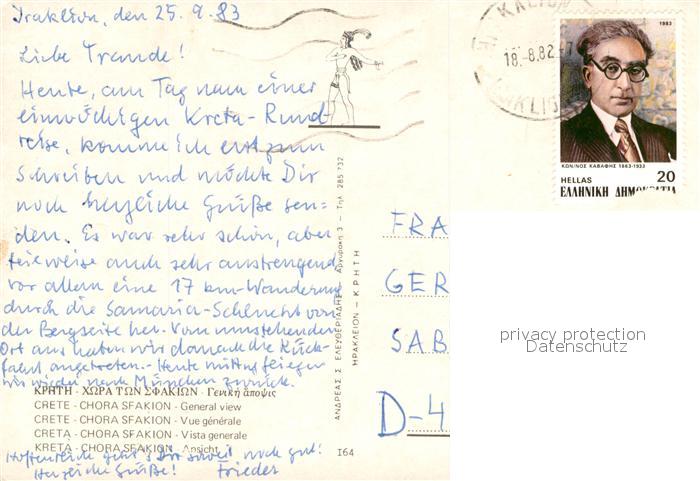 Iraklion, den 25.9.83
Liebe Freunde!
Heute, am Tag nach einer
einwöchigen Kreta-Rund
reise, komme ich erst zum
Schreiben und möchte Dir
noch herzliche Grüße sen=
den. Es war sehr schön, aber
teilweise auch sehr anstrengend,
vor allem eine 17 km-Wanderung
durch die Samaria-Schlucht von
der Bergseite her. Vom umstehenden
Ort aus haben wir danach die Rück-
fahrt angetreten. - Heute mittag fliegen
wir wieder nach München zurück.
ΚΡΗΤΗ - ΧΩΡΑ ΤΩΝ ΣΦΑΚΙΩΝ - Γενική ἄποψις
CRETE - CHORA SFAKION - General view
CRETE - CHORA SFAKION - Vue générale
CRETA - CHORA SFAKION - Vista generale
KRETA - CHORA SFAKION - Ansicht
Hoffentlich geht's Dir soweit noch gut!
Herzliche Grüße! Frieder
ΑΝΔΡΕΑΣ Σ. ΕΛΕΥΘΕΡΙΑΔΗΣ Αργυράκη 3 - Τηλ. 285 732
ΗΡΑΚΛΕΙΟΝ - ΚΡΗΤΗ
164
FRA
GER
SAB
D-4
18.-8.82
1983
ΚΩΝ/ΝΟΣ ΚΑΒΑΦΗΣ 1863-1933
HELLAS 20
ΕΛΛΗΝΙΚΗ ΔΗΜΟΚΡΑΤΙΑ
privacy protection
Datenschutz